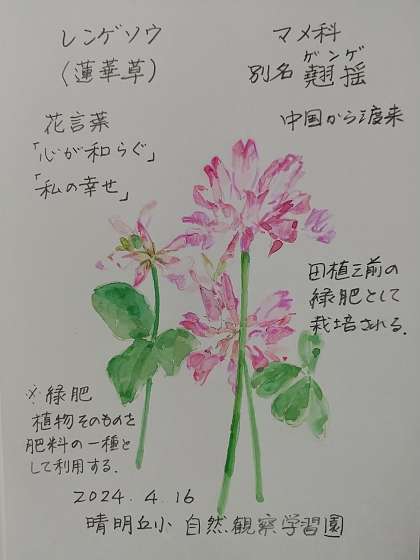 レンゲソウ
(蓮華草)
マメ科
ゲンゲ
別名 翹揺
花言葉
「心が和らぐ」
「私の幸せ」
中国から渡来
田植え前の
緑肥として
栽培される.
※緑肥
植物そのものを
肥料の一種と
して利用する.
2024.4.16
晴明丘小 自然観察学習園